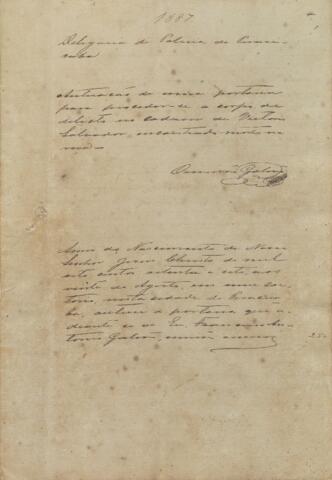 1887
Delegacia de Policia de Piraci-
caba
Autuação de uma portaria
para proceder-se a corpo de
delicto no cadaver de Victorio
Salvador, encontrado morto na
rua
Galvão
Anno do Nascimento de Nosso
Senhor Jesus Christo de mil
oito centos oitenta e sete, aos
vinte de Agosto, em meu car-
torio, nesta cidade de Piracica-
ba, autuei a portaria que a-
diante se vê. Eu Francisco An-
tonio Galvão, escrivão escrevi